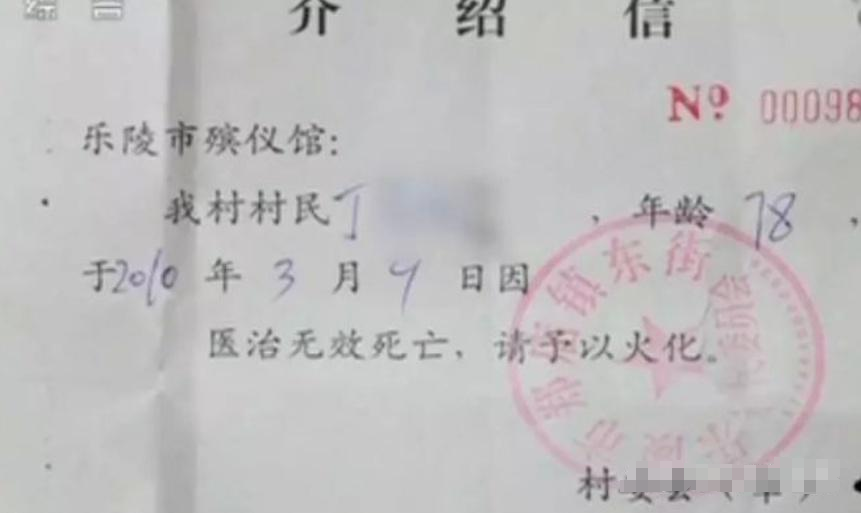 介绍信
Nº 00098
乐陵市殡仪馆:
我村村民丁 , 年龄 78 ,
于2010 年 3 月 4 日因
医治无效死亡, 请予以火化。
镇东街
村